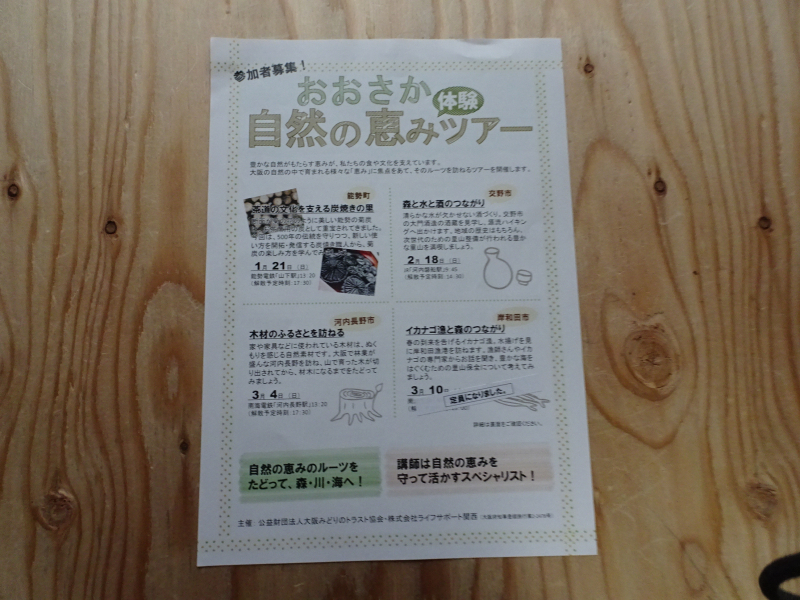 参加者募集！
おおさか
体験
自然の恵みツアー
豊かな自然がもたらす恵みが、私たちの食や文化を支えています。
大阪の自然の中で育まれる様々な「恵み」に焦点をあて、そのルーツを訪ねるツアーを開催します。
能勢町
茶道の文化を支える炭焼きの里
ように美しい能勢の菊炭
炭として重宝されてきました。
今回は、500年の伝統を守りつつ、新しい使
い方を開拓・発信する炭焼き職人から、菊
炭の楽しみ方を学んでみ
1月 21日（日）
能勢電鉄「山下駅」13:20
（解散予定時刻 17:30）
交野市
森と水と酒のつながり
清らかな水が欠かせない酒づくり。交野市
の大門酒造の酒蔵を見学し、源流ハイキン
グへ出かけます。地域の歴史はもちろん、
次世代のための里山整備が行われる豊か
な里山を満喫しましょう。
2月 18日（日）
JR「河内磐船駅」9:45
（解散予定時刻 14:30）
河内長野市
木材のふるさとを訪ねる
家や家具などに使われている木材は、ぬく
もりを感じる自然素材です。大阪で林業が
盛んな河内長野を訪ね、山で育った木が切
り出されてから、材木になるまでをたどって
みましょう。
3月 4日（日）
南海電鉄「河内長野駅」13:20
（解散予定時刻 17:30）
岸和田市
イカナゴ漁と森のつながり
春の到来を告げるイカナゴ漁。水揚げを見
に岸和田漁港を訪ねます。漁師さんやイカ
ナゴの専門家からお話を聞き、豊かな海を
はぐくむための里山保全について考えてみ
ましょう。
3月 10
定員になりました。
詳細は裏面をご確認ください。
自然の恵みのルーツを
たどって、森・川・海へ！
講師は自然の恵みを
守って活かすスペシャリスト！
主催 公益財団法人大阪みどりのトラスト協会・株式会社ライフサポート関西